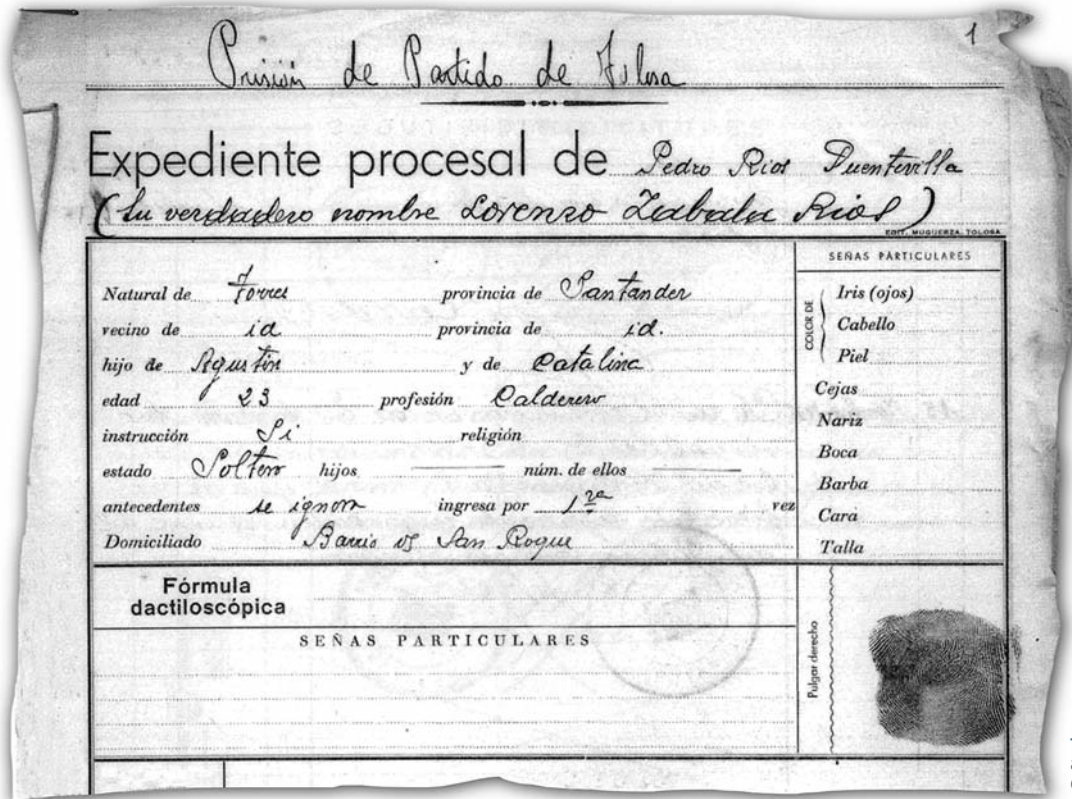 1
Prisión de Partido de Tolosa
Expediente procesal de Pedro Rios Puentevilla
(Su verdadero nombre Lorenzo Zabala Rios)
EDIT. MUGUERZA. TOLOSA
Natural de Torres provincia de Santander
vecino de id provincia de id.
hijo de Agustin y de Catalina
edad 23 profesión Calderero
instrucción Si religión
estado Soltero hijos núm. de ellos
antecedentes se ignora ingresa por 1ra vez
Domiciliado Barrio de San Roque
SEÑAS PARTICULARES
COLOR DE
Iris (ojos)
Cabello
Piel
Cejas
Nariz
Boca
Barba
Cara
Talla
Fórmula
dactiloscópica
SEÑAS PARTICULARES
Pulgar derecho